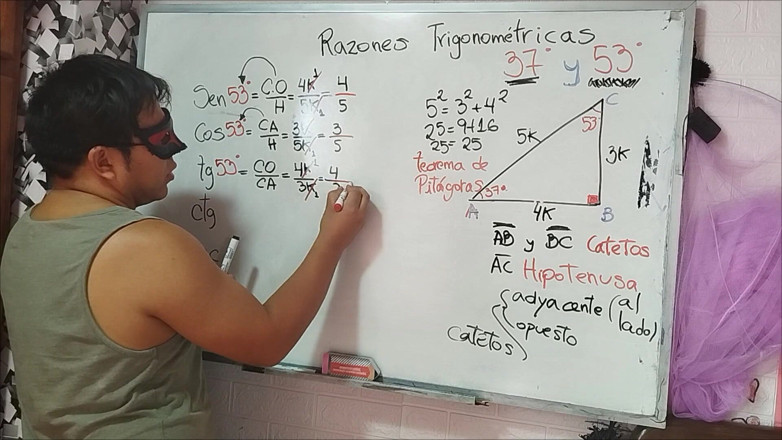 Razones Trigonométricas
37° y 53°
Sen 53° = C.O/H = 4K/5K = 4/5
Cos 53° = CA/H = 3K/5K = 3/5
tg 53° = CO/CA = 4K/3K = 4/
ctg
5² = 3² + 4²
25 = 9+16
25 = 25
teorema de
Pitágoras
C
53°
5K
3K
37°
A
4K
B
AB y BC Catetos
AC Hipotenusa
catetos
adyacente (al
lado)
opuesto